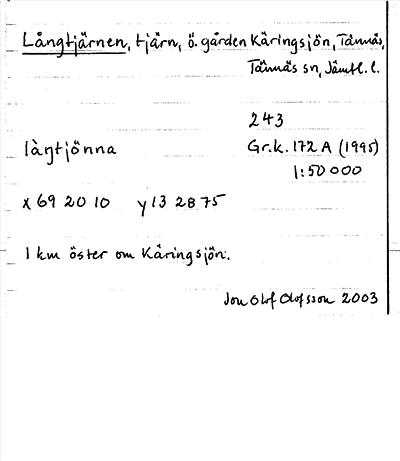 Långtjärnen, tjärn, ö. gården Käringsjön, Tännäs,
Tännäs sn, Jämtl. l.
243
làŋtjönna
Gr.k. 172 A (1995)
1:50 000
x 69 20 10 y 13 28 75
1 km öster om Käringsjön.
Jon Olof Olofsson 2003